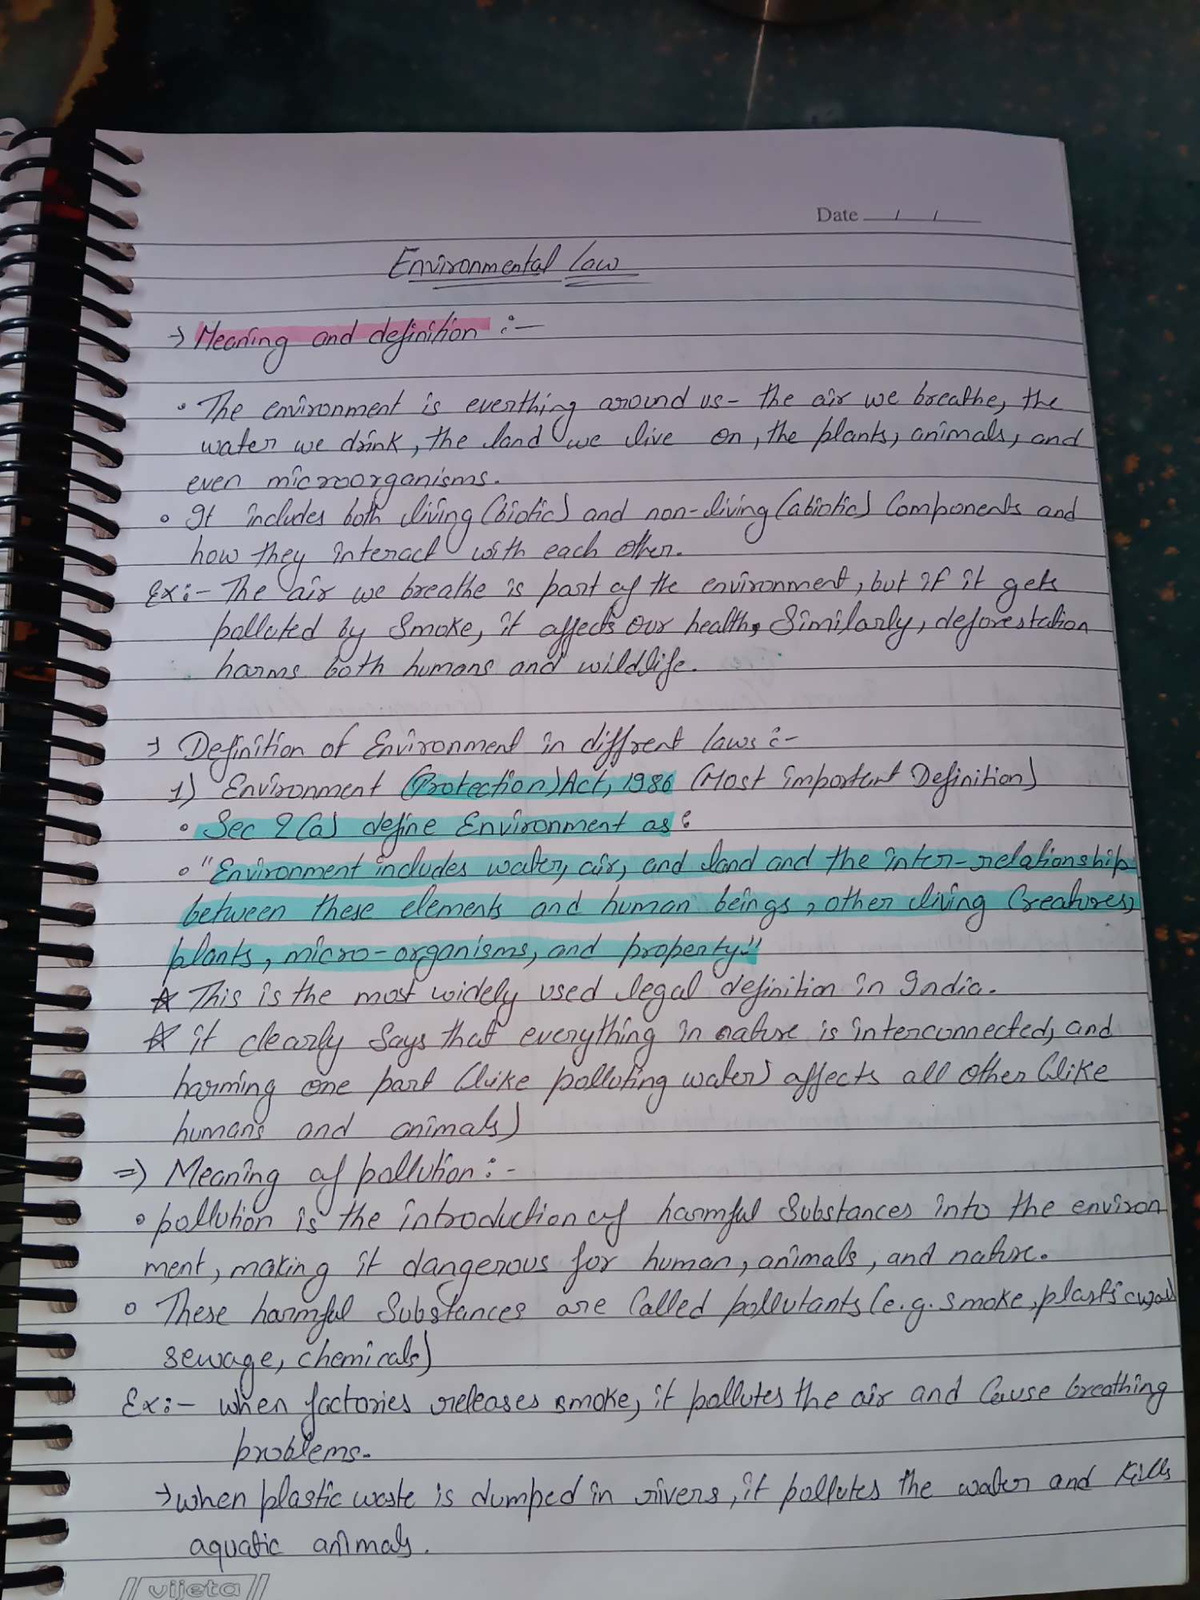 Date __/__/__
Environmental Law
→ Meaning and definition :-
• The environment is everthing around us - the air we breathe, the
water we drink, the land we live on, the plants, animals, and
even microorganisms.
• It includes both living (biotic) and non-living (abiotic) Components and
how they interact with each other.
Ex:- The air we breathe is part of the environment, but if it gets
polluted by smoke, it affects our health, Similarly, deforestation
harms both humans and wildlife.
→ Definition of Environment in diffrent laws :-
1) Environment (Protection) Act, 1986 (Most important Definition)
• Sec 2(a) define Environment as :
• "Environment includes water, air, and land and the inter-relationship
between these elements and human beings, other living Creatures,
plants, micro-organisms, and property."
☆ This is the most widely used legal definition in India.
☆ it clearly Says that everything in nature is interconnected, and
harming one part (like polluting water) affects all other (like
humans and animals)
⇒) Meaning of pollution :-
• pollution is the introduction of harmful Substances into the environ
ment, making it dangerous for human, animals, and nature.
• These harmful Substances are Called pollutants (e.g. smoke, plastic
sewage, chemicals)
Ex:- when factories releases smoke, it pollutes the air and Cause breathing
problems.
→ when plastic waste is dumped in rivers, it pollutes the water and Kills
aquatic animals.
vijeta